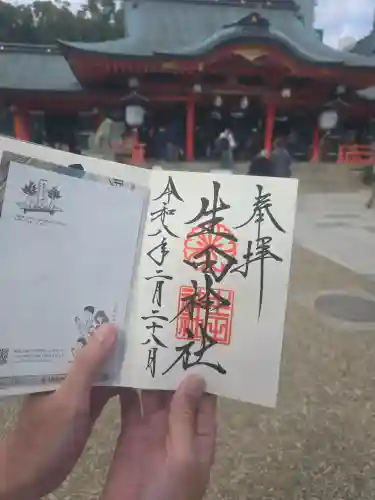 奉拝
生田神社
令和八年二月二十八日